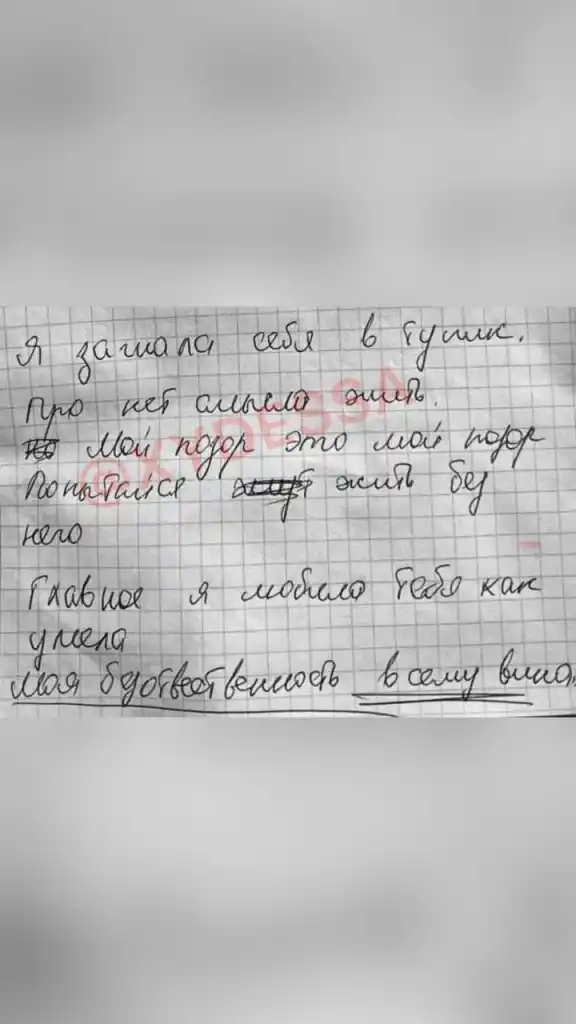 Я загнала себя в тупик.
Про нет смысла жить.
Мой позор это мой позор
Попытайся жить без
него
Главное я любила тебя как
умела
Моя безответственность всему вина.
@XYDESSA